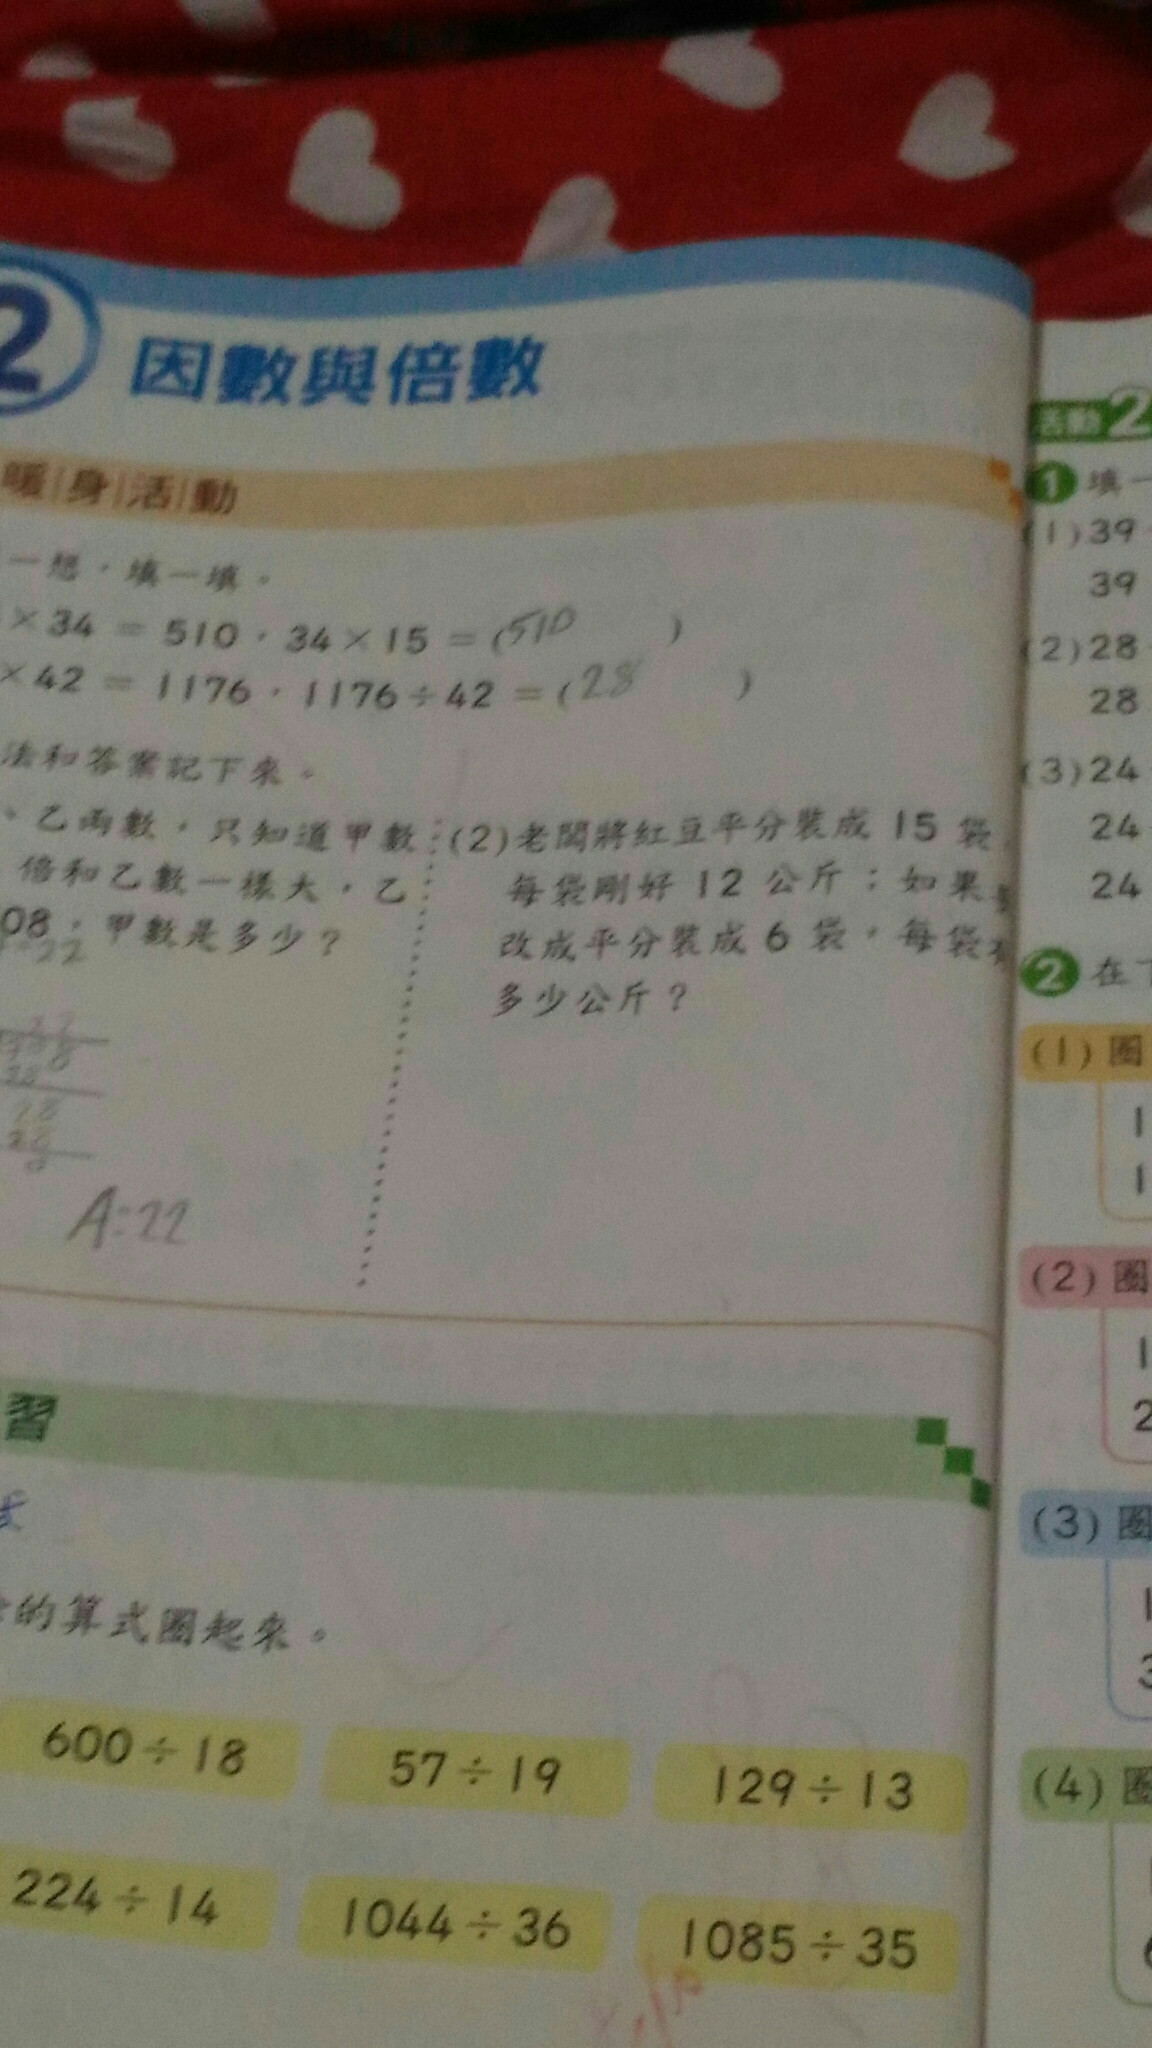 2 因數與倍數
暖身活動
一想,填一填。
×34 = 510,34×15 = (510)
×42 = 1176,1176÷42 = (28)
法和答案記下來。
、乙兩數,只知道甲數
倍和乙數一樣大,乙
08,甲數是多少?
÷22
22
308
28
28
28
0
A:22
(2)老闆將紅豆平分裝成 15 袋
每袋剛好 12 公斤;如果
改成平分裝成 6 袋,每袋
多少公斤?
習
的算式圈起來。
600÷18
57÷19
129÷13
224÷14
1044÷36
1085÷35
活動2
1 填一
(1)39
39
(2)28
28
(3)24
24
24
2 在
(1)圈
1
1
(2)圈
1
2
(3)圈
1
3
(4)圈
1
6